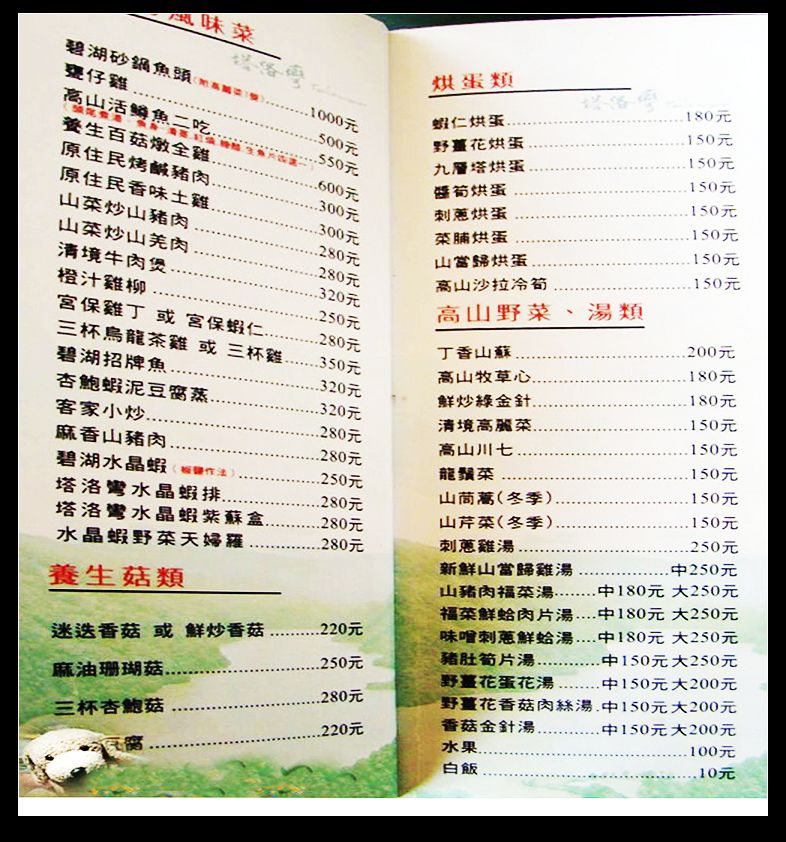 風味菜
塔洛彎
碧湖砂鍋魚頭(附高麗菜1盤)..........1000元
甕仔雞..........500元
高山活鱒魚二吃..........550元
養生百菇燉全雞..........600元
原住民烤鹹豬肉..........300元
原住民香味土雞..........300元
山菜炒山豬肉..........280元
山菜炒山羌肉..........280元
清境牛肉煲..........320元
橙汁雞柳..........250元
宮保雞丁 或 宮保蝦仁..........280元
三杯烏龍茶雞 或 三杯雞..........350元
碧湖招牌魚..........320元
杏鮑蝦泥豆腐蒸..........320元
客家小炒..........280元
麻香山豬肉..........280元
碧湖水晶蝦(椒鹽作法)..........250元
塔洛彎水晶蝦排..........280元
塔洛彎水晶蝦紫蘇盒..........280元
水晶蝦野菜天婦羅..........280元
養生菇類
迷迭香菇 或 鮮炒香菇..........220元
麻油珊瑚菇..........250元
三杯杏鮑菇..........280元
腐..........220元
烘蛋類
塔洛彎
蝦仁烘蛋..........180元
野薑花烘蛋..........150元
九層塔烘蛋..........150元
醬筍烘蛋..........150元
刺蔥烘蛋..........150元
菜脯烘蛋..........150元
山當歸烘蛋..........150元
高山沙拉冷筍..........150元
高山野菜、湯類
丁香山蘇..........200元
高山牧草心..........180元
鮮炒綠金針..........180元
清境高麗菜..........150元
高山川七..........150元
龍鬚菜..........150元
山茼蒿(冬季)..........150元
山芹菜(冬季)..........150元
刺蔥雞湯..........250元
新鮮山當歸雞湯..........中250元
山豬肉福菜湯......中180元 大250元
福菜鮮蛤肉片湯....中180元 大250元
味噌刺蔥鮮蛤湯....中180元 大250元
豬肚筍片湯..........中150元 大250元
野薑花蛋花湯.......中150元 大200元
野薑花香菇肉絲湯.中150元 大200元
香菇金針湯..........中150元 大200元
水果..........100元
白飯..........10元